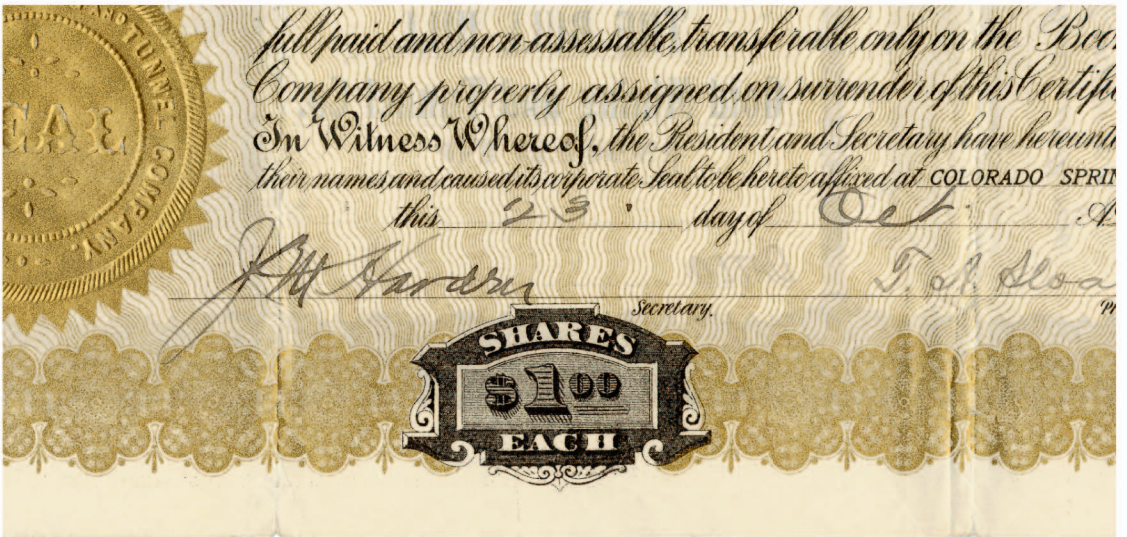 TUNNEL COMPANY.
SEAL
full paid and non-assessable, transferable only on the Boo
Company properly assigned, on surrender of this Certifi
In Witness Whereof, the President and Secretary have hereunt
their names and caused its corporate Seal to be hereto affixed at COLORADO SPRIN
this 23 day of Oct. A
J M Hardin T. A. Sloa
Secretary.
SHARES
$1.00
EACH